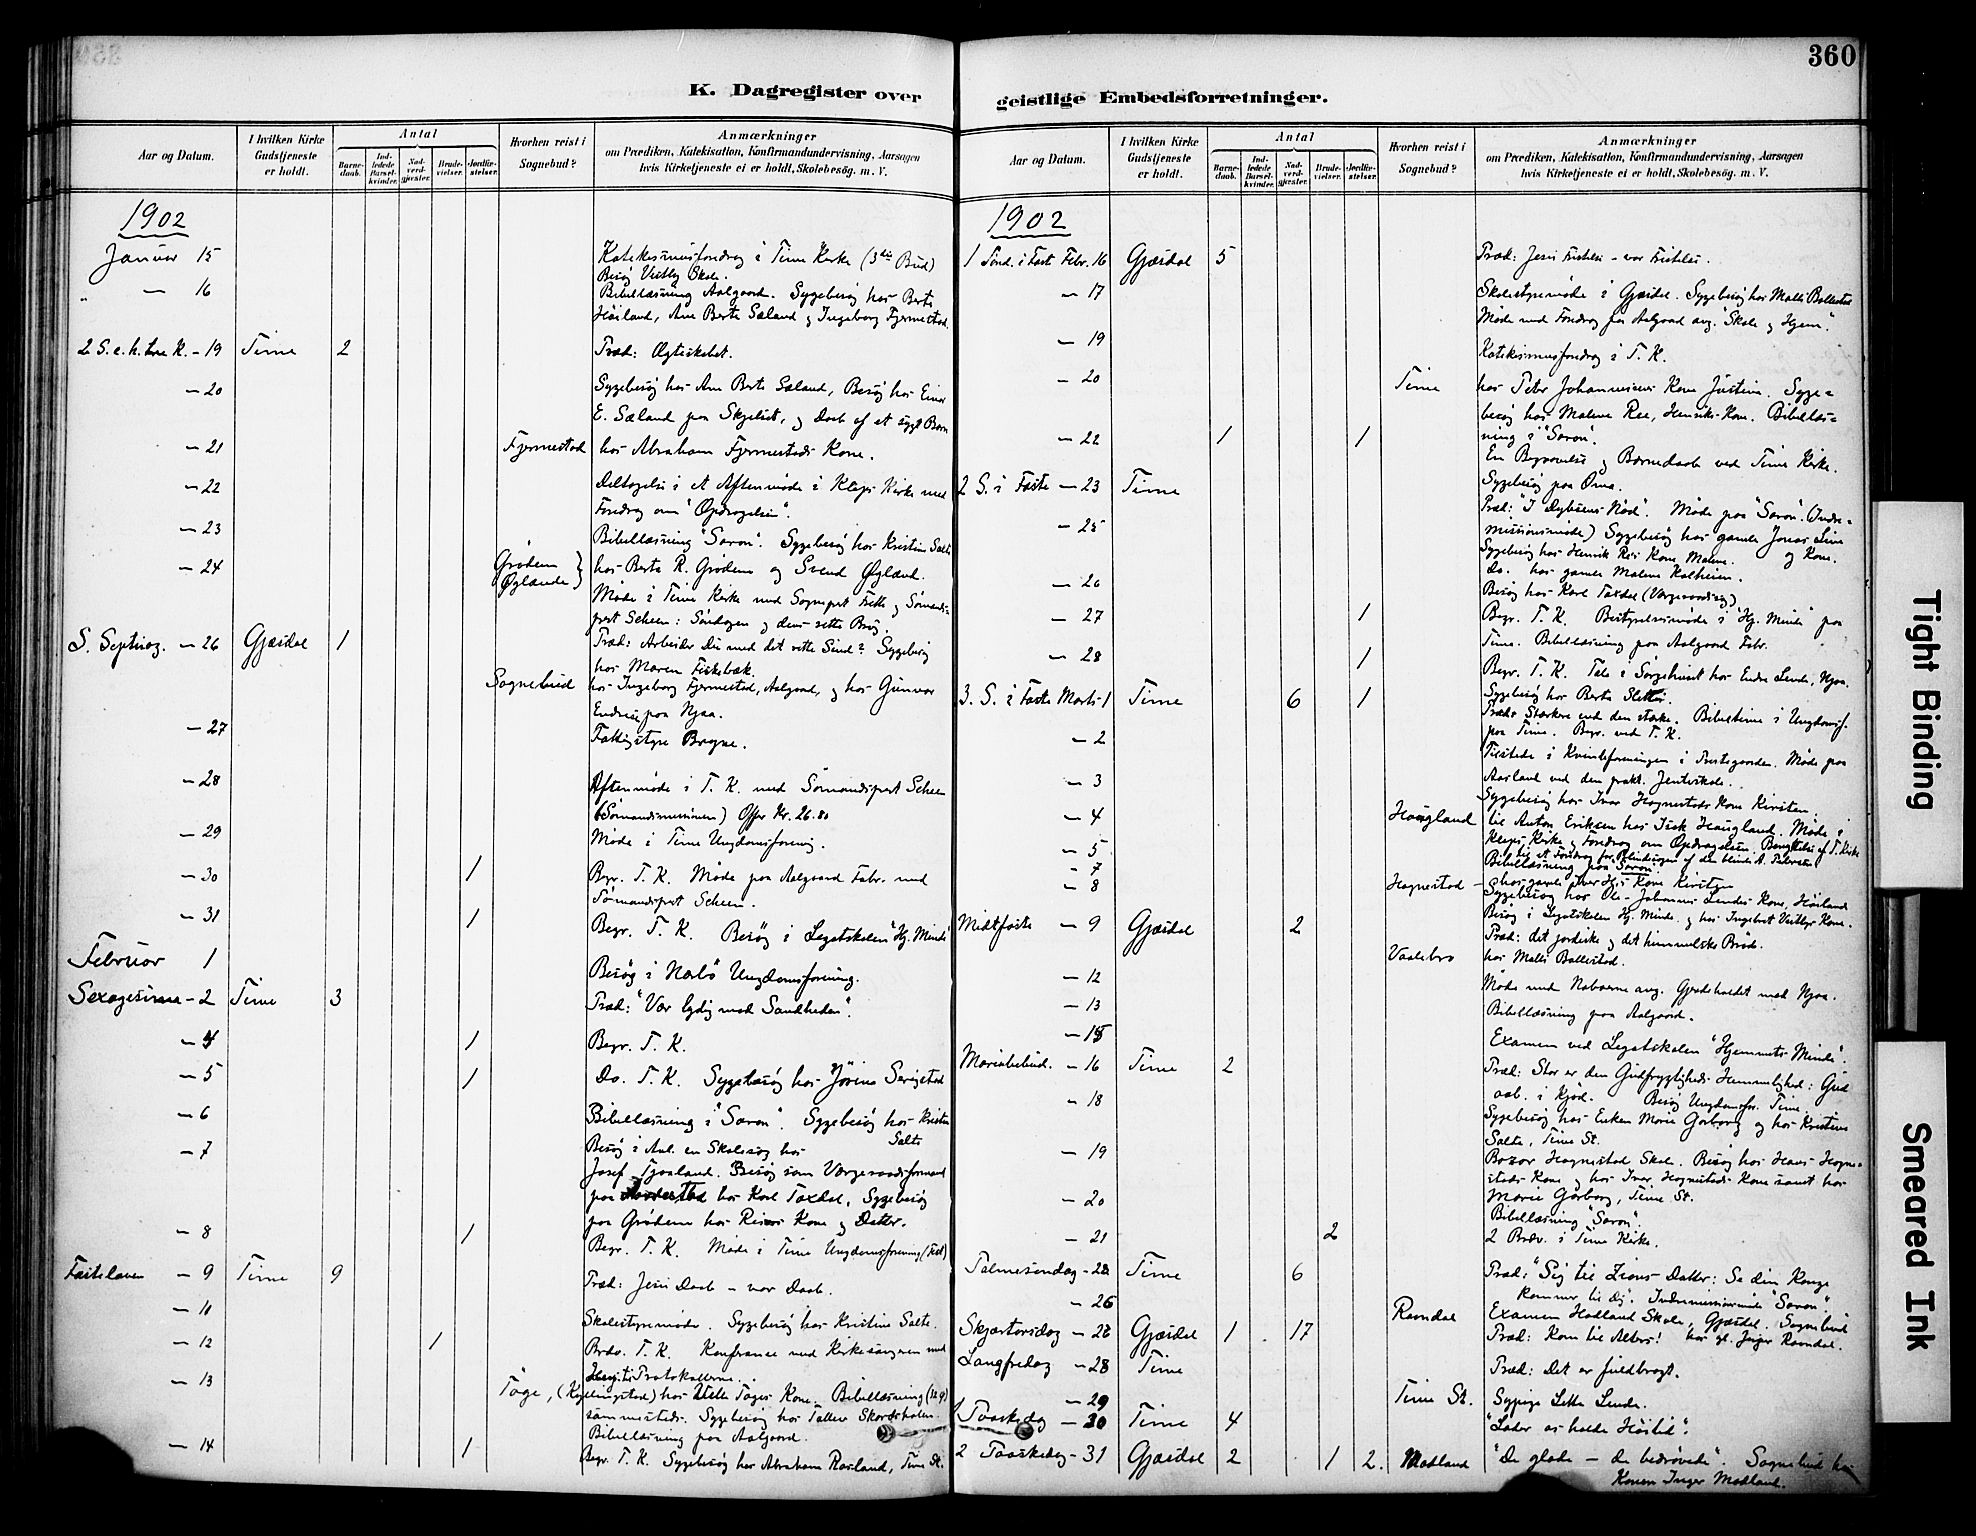 360
K. Dagregister over geistlige Embedsforretninger.
Aar og Datum.
I hvilken Kirke Gudstjeneste er holdt.
Antal
Barne-daab.
Ind-ledede Barsel-kvinder.
Nad-verd-gjester.
Brude-vielser.
Jordfæ-stelser.
Hvorhen reist i Sognebud?
Anmærkninger
om Prædiken, Katekisation, Konfirmandundervisning, Aarsagen
hvis Kirketjeneste ei er holdt, Skolebesøg. m. V.
1902
Januar 15 Katekismusforedrag i Time Kirke (3die Bud)
Besøg Vestly Skole.
" — 16 Bibellæsning Aalgaard. Sygebesøg hos Berte
Høiland, Ane Berte Sæland og Ingeborg Fjermestad.
2 S. e. h. tre K. — 19 Time 2 Præd: Ægteskabet.
— 20 Sygebesøg hos Ane Berte Sæland, Besøg hos Einar
E. Sæland paa Skjelset, og Daab af et sygt Barn
— 21 Fjermestad hos Abraham Fjermestads Kone.
— 22 Deltagelse i et Aftenmøde i Klepp Kirke med
Foredrag om "Opdragelse".
— 23 Bibellæsning "Saron". Sygebesøg hos Kristine Salte
— 24 Grødem } Øglænde } hos Berte R. Grødem og Svend Øglænd.
Møde i Time Kirke med Sogneprest og Sømands=
prest Scheen: Søndagen og dens rette Brug.
S. Septuag. — 26 Gjæsdal 1 Præd: Arbeider Du med det rette Sind? Sygebesøg
hos Maren Fiskebæk.
Sognebud hos Ingeborg Fjermestad, Aalgaard, og hos Gunvor
paa Njaa.
— 27 Fattigstyre Bryne.
— 28 Aftenmøde i T. K. med Sømandsprest Scheen
(Sømandsmissionen) Offer Kr. 26.80
— 29 Møde i Time Ungdomsforening.
— 30 1 Begr. T. K. Møde paa Aalgaard Fabr. med
Sømandsprest Scheen.
— 31 1 Begr. T. K. Besøg i Legatskolen "Hj. Minde"
Februar 1 Besøg i Nærbø Ungdomsforening.
Sexagesima — 2 Time 3 Præd: "Vær lydig mod Sandheden".
— 4 1 Begr. T. K.
— 5 1 Do. T. K. Sygebesøg hos Jørine Serigstad
— 6 Bibellæsning i "Saron". Sygebesøg hos Kristine
Salte
— 7 Besøg i Anl. en Skolesag hos
Josef Tjaaland. Besøg som Vergeraadsformand
paa hos Karl Taxdal. Sygebesøg
paa Grødem hos Kone og Datter.
— 8 1 Begr. T. K. Møde i Time Ungdomsforening (Fest)
Fastelavn — 9 Time 9 Præd: Jesu Daab — vor Daab.
— 10 Skolestyremøde. Sygebesøg hos Kristine Salte.
— 12 1 Brdv. T. K. Konferance med Kirkesangeren med
Hensyn til Protokollerne.
— 13 Tage, (Kyllingstad) hos Tages Kone. Bibellæsning
sammesteds. Sygebesøg hos
Bibellæsning paa Aalgaard.
— 14 1 Begr. T. K. Sygebesøg hos Abraham Rosland, Time St.
Aar og Datum.
I hvilken Kirke Gudstjeneste er holdt.
Antal
Barne-daab.
Ind-ledede Barsel-kvinder.
Nad-verd-gjester.
Brude-vielser.
Jordfæ-stelser.
Hvorhen reist i Sognebud?
Anmærkninger
om Prædiken, Katekisation, Konfirmandundervisning, Aarsagen
hvis Kirketjeneste ei er holdt, Skolebesøg. m. V.
1902
1 Sønd. i Faste Febr. 16 Gjæsdal 5 Præd: Jesu Fristelse — vor Fristelse.
— 17 Skolestyremøde i Gjæsdal. Sygebesøg hos Malli Ballestad
Møde med Foredrag paa Aalgaard ang. "Skole og Hjem".
— 19 Katekismusforedrag i T. K.
— 20 Time hos Peter Johannesens Kone Justine. Syge=
besøg hos Malene Ree, Henriks Kone. Bibellæs=
ning i "Saron".
— 22 1 1 En Begravelse og Barnedaab ved Time Kirke.
Sygebesøg paa Oma.
2 S. i Faste — 23 Time Præd: "I Dybsens Nød". Møde paa "Saron". (Indre=
missionsmøde) Sygebesøg hos gamle Jonas Line
og Kone.
— 25 Sygebesøg hos Henrik Re's Kone Malene.
Do. hos gamle Malene Kalheien.
— 26 Besøg hos Karl Taxdal (Vergeraadssag)
— 27 1 Begr. T. K. Bestyrelsesmøde i "Hj. Minde" paa
Time. Bibellæsning paa Aalgaard Fabr.
— 28 1 Begr. T. K. Tale i Sørgehuset hos Endre Lende, Njaa.
Sygebesøg hos Berta
3. S. i Faste Marts 1 Time 6 1 Præd: Stærkere end den stærke. Bibeltime i Ungdomsf.
paa Time. Begr. ved T. K.
— 2 Tilstede i Kvindeforeningen i Prestegaarden. Møde paa
Aarland ved den prakt. Jenteskole.
— 3 Sygebesøg hos Ivar Hognestads Kone Kirsten
— 4 Haugland til Anton Eriksen hos Isak Haugland. Møde i
Klepp Kirke og Foredrag om Opdragelsen. Benyttelse af T. Kirke
— 5 til et Foredrag for Blindesagen af den blinde A. Pedersen
— 7 Bibellæsning paa "Saron".
— 8 Hognestad — hos gamle Iver H.s Kone Kirsten
Sygebesøg hos Ole Johannes Lendes Kone, Høiland
Besøg i Legatskolen Hj. Minde og hos Ingebret Vestlys Kone.
Midtfaste — 9 Gjæsdal 2 Præd: det jordiske og det himmelske Brød.
Vaalebro hos Malli Ballestad.
— 12 Møde med Naboerne ang. Gjerdeholdet mod Njaa.
— 13 Bibellæsning paa Aalgaard.
— 15 Examen ved Legatskolen "Hjemmets Minde".
Mariabebud. — 16 Time 2 Præd: Stor er den Gudfrygtigheds Hemmelighed: Gud
aab. i Kjød. Besøg Ungdomsfor. Time.
— 18 Sygebesøg hos Enken Marie Garborg og hos Kristine
Salte, Time St.
— 19 Bazar Hognestad Skole. Besøg hos Hans Hogne=
stads Kone og hos Ivar Hognestads Kone samt hos
Marie Garborg, Time St.
— 20 Bibellæsning "Saron".
— 21 2 2 Brdv. i Time Kirke.
Palmesøndag — 23 Time 6 Præd: "Sig til Zions Datter: Se din Konge
kommer til dig". Indremissionsmøde "Saron".
— 26 Ravndal Examen Hadland Skole, Gjæsdal. Sognebud
Skjærtorsdag — 27 Gjæsdal 1 17 Præd: Kom til Alters! hos gl. Inger Ravndal.
Langfredag — 28 Time Præd: Det er fuldbragt.
— 29 Time St. Sypige Lette Lende.
1 Paaskedag — 30 Time 4 "Lader os holde Høitid".
2 Paaskedag — 31 Gjæsdal 2 1 2. Madland "De glade — de bedrøvede". Sognebud hos
Konen Inger Madland.
Tight Binding
Smeared Ink